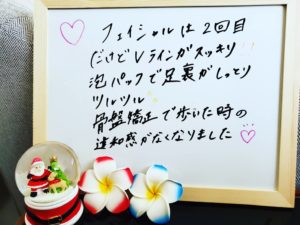 フェイシャルは2回目
だけどVラインがスッキリ
泡パックで足裏がしっとり
ツルツル
骨盤矯正で歩いた時の
違和感がなくなりました